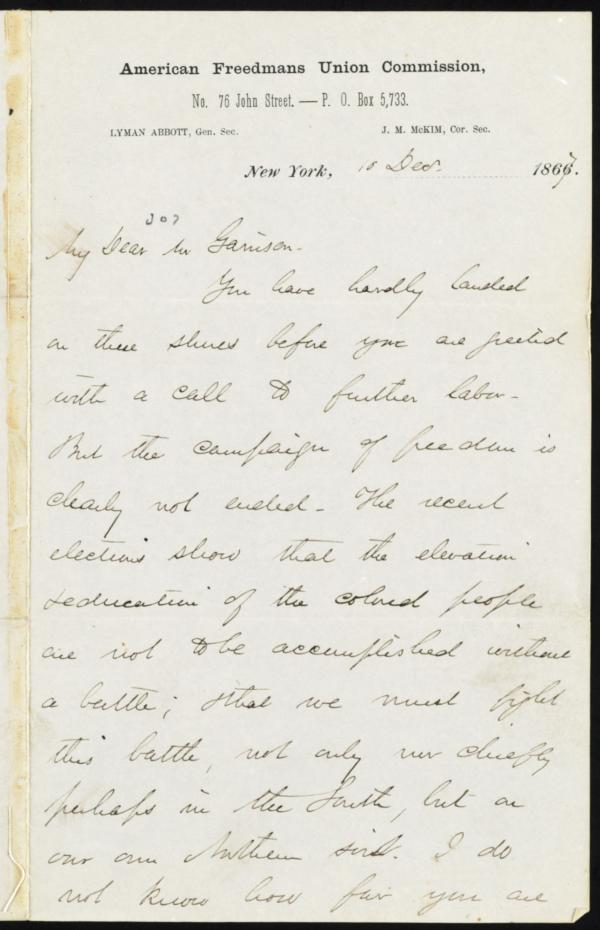 American Freedmans Union Commission,
No. 76 John Street. — P. O. Box 5,733.
LYMAN ABBOTT, Gen. Sec. J. M. McKIM, Cor. Sec.
New York, 10 Dec. 1867.
My Dear Mr Garrison-
You have hardly landed
on these shores before you are greeted
with a call to further labor-
But the campaign of freedom is
clearly not ended- The recent
elections show that the elevation
& education of the colored people
are not to be accomplished without
a battle; & that we must fight
this battle, not only nor chiefly
perhaps in the South, but on
our own Northern soil. I do
not know how far you are